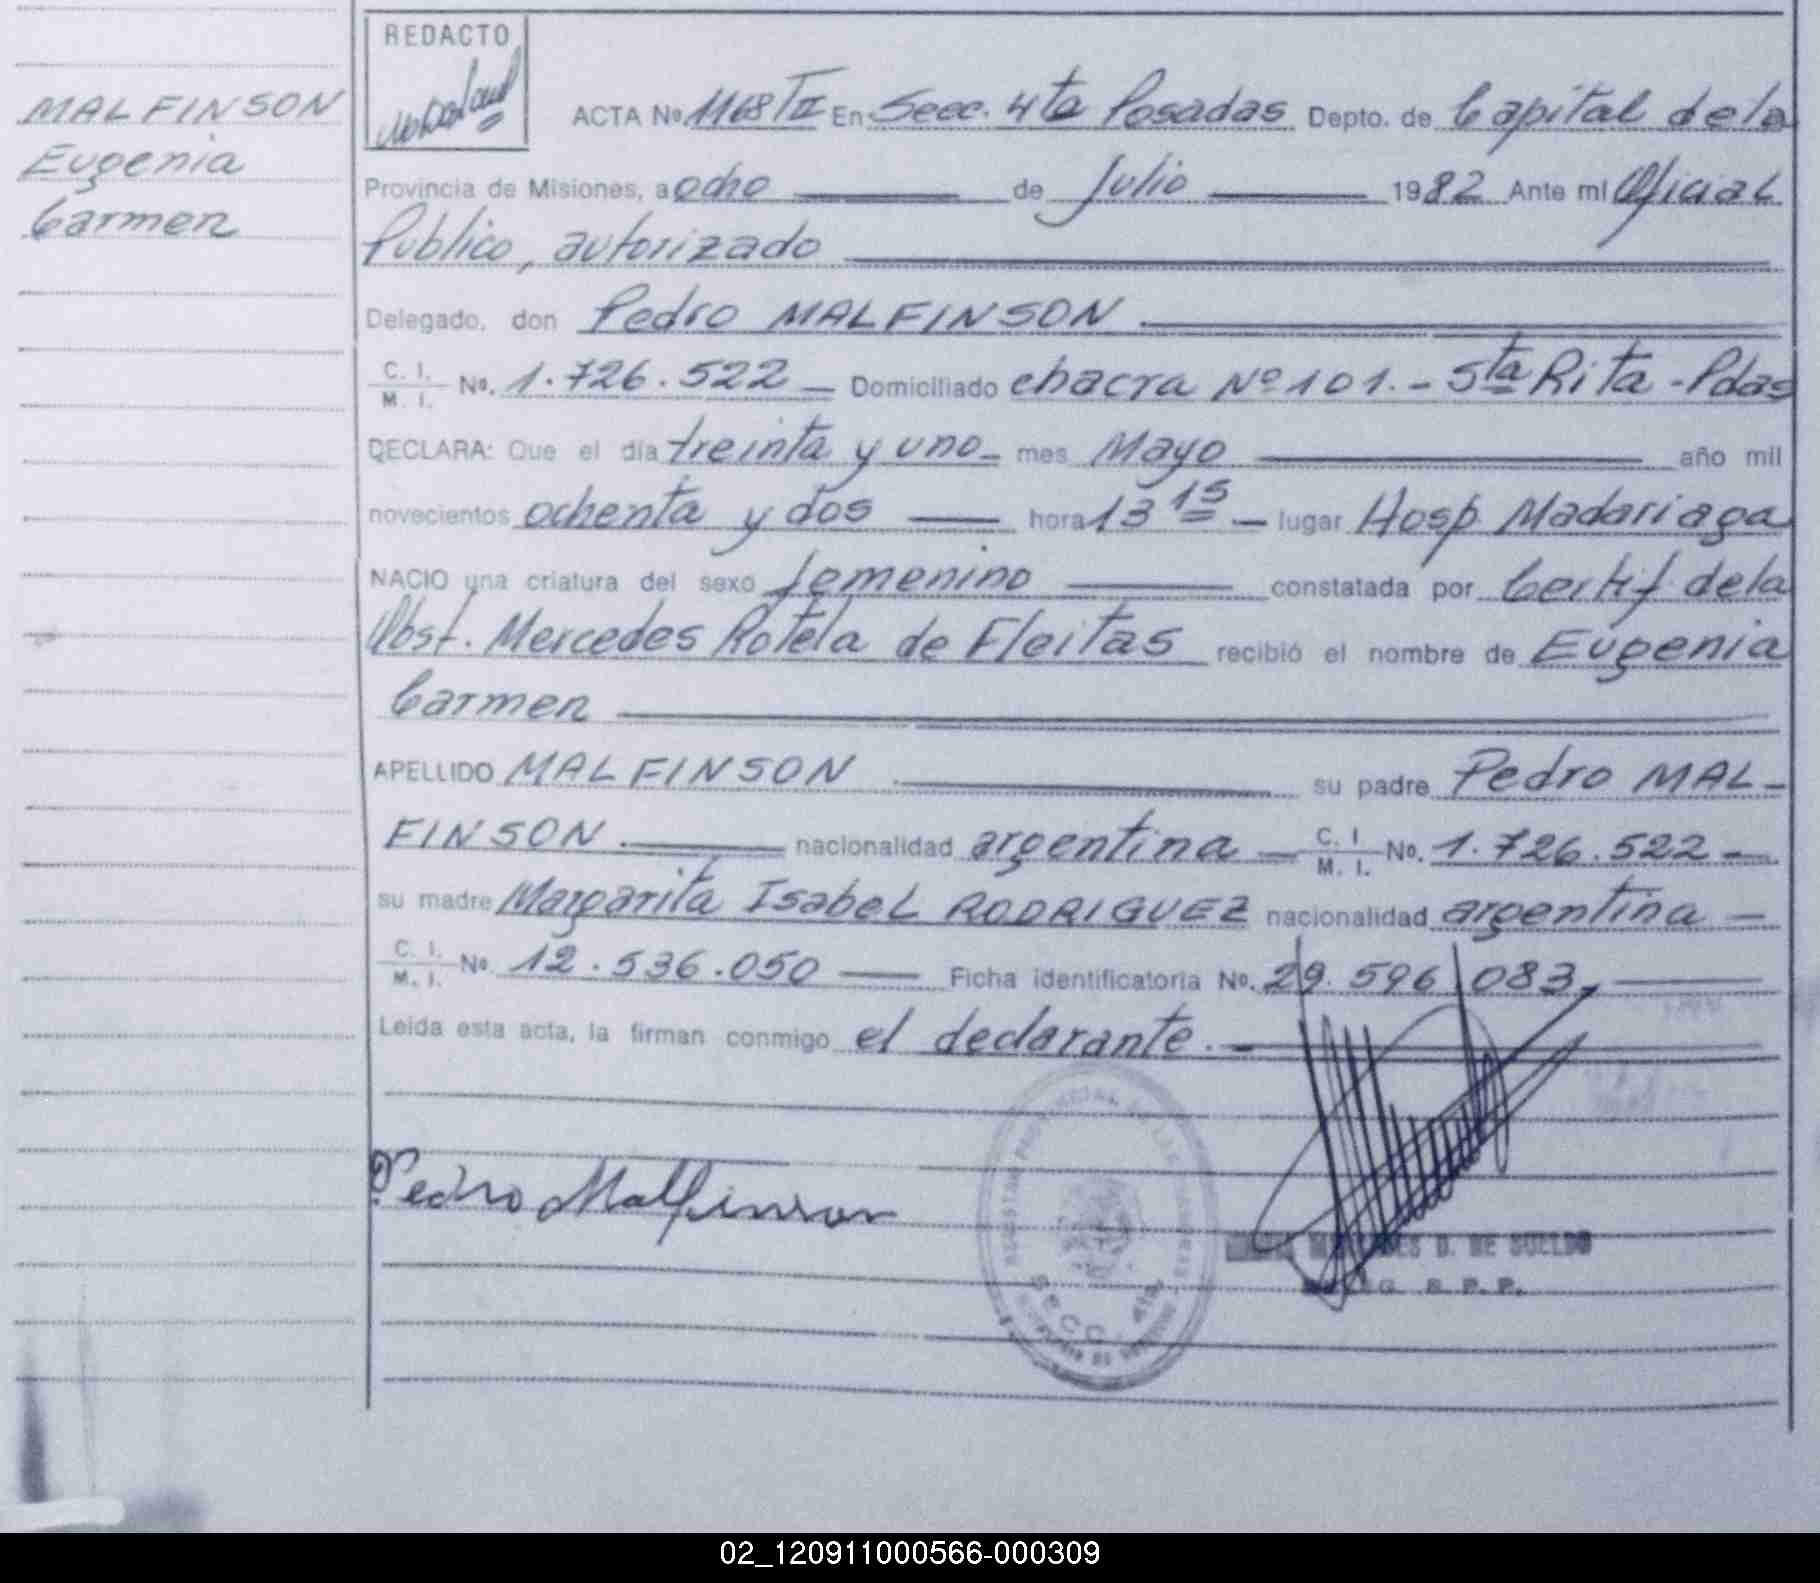 REDACTO
MALFINSON
Eugenia
Carmen
ACTA No. 1168 TII En Secc. 4ta Posadas Depto. de Capital de la
Provincia de Misiones, a ocho de Julio 1982 Ante mi Oficial
Publico, autorizado
Delegado, don Pedro MALFINSON
C. I. / M. I. No. 1.726.522 Domiciliado chacra Nº 101.- Sta Rita - Pdas
DECLARA: Que el día treinta y uno mes Mayo año mil
novecientos ochenta y dos hora 13 15 lugar Hosp. Madariaga
NACIO una criatura del sexo femenino constatada por Certif de la
Obst. Mercedes Rotela de Fleitas recibió el nombre de Eugenia
Carmen
APELLIDO MALFINSON su padre Pedro MAL-
FINSON nacionalidad argentina C. I. / M. I. No. 1.726.522
su madre Margarita Isabel RODRIGUEZ nacionalidad argentina
C. I. / M. I. No. 12.536.050 Ficha identificatoria No. 29.596.083
Leida esta acta, la firman conmigo el declarante.
Pedro Malfinson
SECC. 4ta
D. DE SUELDO
R. P. P.
02_120911000566-000309